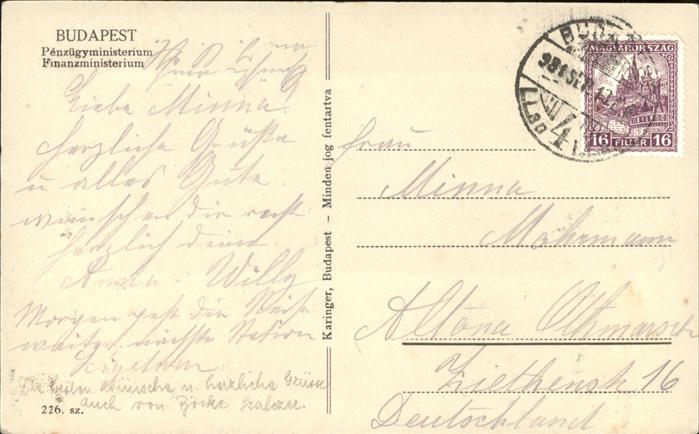 BUDAPEST
Pénzügyministerium
Finanzministerium
Liebe Minna.
Herzliche Grüße
u alles Gute
wünschen dir recht
herzlich deine
Anna - Willy
Morgen geht die Reise
weiter nächste Station
Die besten Wünsche u. herzliche Grüsse
auch von
226. sz.
Karinger, Budapest – Minden jog fentartva
BUDA
MAGYARORSZÁG
16 FILLÉR 16
Frau
Minna
Mohrmann
Altona Othmarsch
Ziethenstr 16
Deutschland